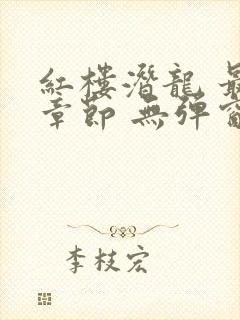 紅樓潛龍 最
章節 無彈窗
李枝宏